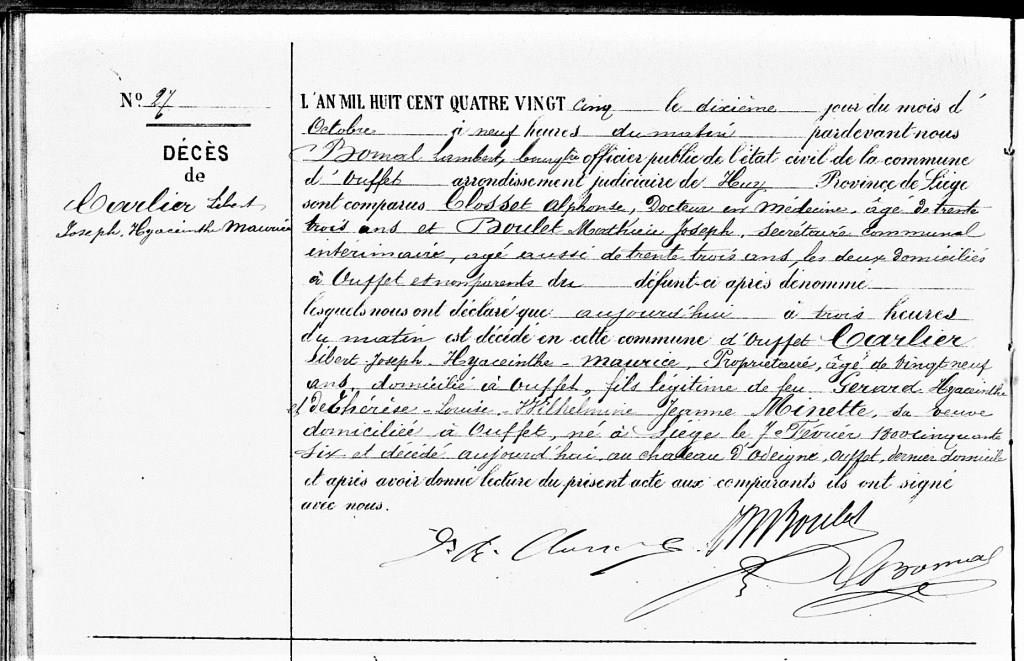 Nº 27
DÉCÈS
de
Carlier Libert
Joseph, Hyacinthe Maurice
L'AN MIL HUIT CENT QUATRE VINGT cinq le dixième jour du mois d'
Octobre à neuf heures du matin pardevant nous
Bomal Lambert, bourgtre officier public de l'état civil de la commune
d' Ouffet arrondissement judiciaire de Huy Province de Liège
sont comparus Closset Alphonse, Docteur en Médecine, âgé de trente
trois ans et Boulet Mathieu Joseph, secrétaire communal
intérimaire, agé aussi de trente trois ans, les deux domiciliés
à Ouffet et non parents du défunt-ci après dénommé
lesquels nous ont déclaré que aujourd'hui à trois heures
du matin est décédé en cette commune d'Ouffet Carlier
Libert Joseph - Hyacinthe - Maurice, Propriétaire, âgé de vingt neuf
ans, domicilié à Ouffet, fils légitime de feu Gerard Hyacinthe
et de Thérèse - Louise - Wilhelmine Jeanne Minette, sa veuve
domiciliée à Ouffet, né à Liége le 7e Février 1800 cinquante
six et décédé aujourd'hui au chateau d'Odeigne, Ouffet, dernier domicile
et après avoir donné lecture du présent acte aux comparants ils ont signé
avec nous.
JMBoulet
LBomal